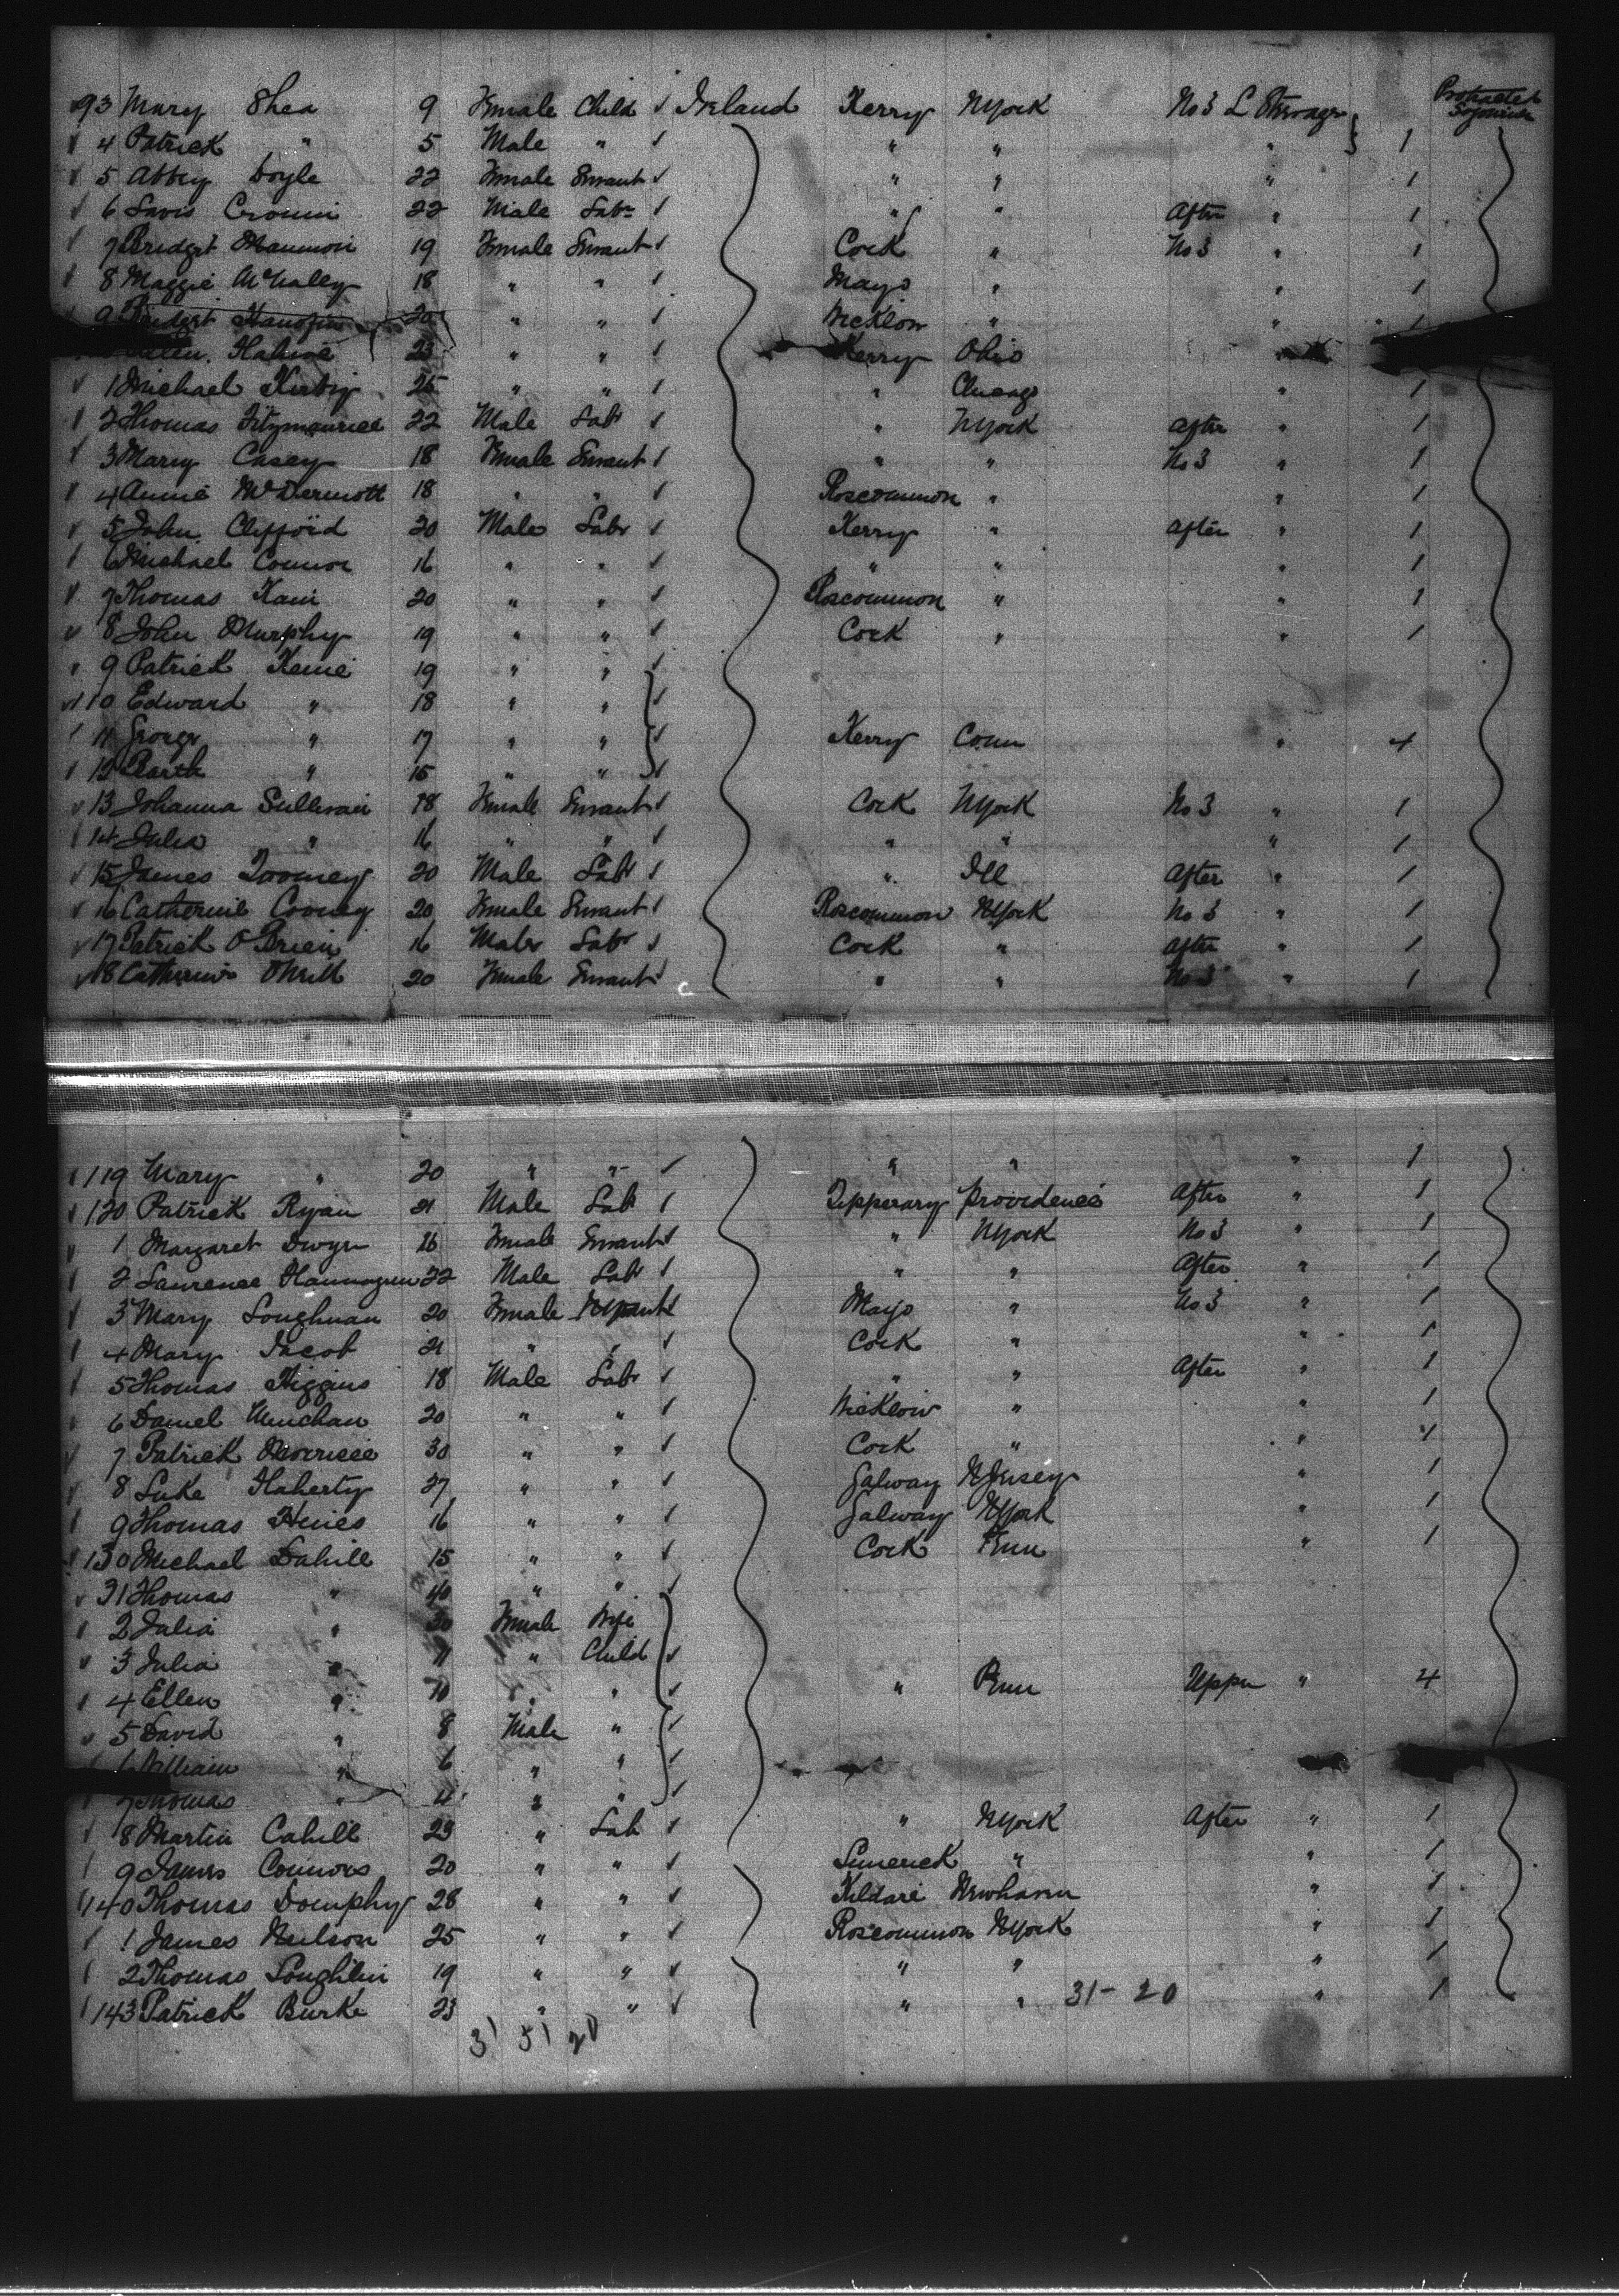 93 Mary Shea 9 Female Child Ireland Kerry NYork No 3 L Steerage Protracted Sojourn
4 Patrick " 5 Male " " " " 1
5 Abbey Doyle 22 Female Servant " " " 1
6 Cronin 22 Male Labr " " After " 1
7 Bridget 19 Female Servant Cork " No 3 " 1
8 Maggie McNaley 18 " " Mayo " " 1
9 Bridget 20 " " Wicklow " " 1
Ellen 23 " " Kerry Ohio "
1 Michael Kirby 25 " " " Chicago " 1
2 Thomas Fitzmaurice 22 Male Labr " NYork After " 1
3 Mary Casey 18 Female Servant " " No 3 " 1
4 Annie McDermott 18 " " Roscommon " " 1
5 John Clifford 20 Male Labr Kerry " After " 1
6 Michael Connor 16 " " " " " 1
7 Thomas 20 " " Roscommon " " 1
8 John Murphy 19 " " Cork " " 1
9 Patrick 19 " "
110 Edward " 18 " "
11 George " 17 " " Kerry Conn " 4
12 Barth " 15 " "
13 Johanna Sullivan 18 Female Servant Cork NYork No 3 " 1
14 Julia " 16 " " " " " 1
15 James Toomey 20 Male Labr " Ill After " 1
16 Catherine Cooney 20 Female Servant Roscommon NYork No 3 " 1
17 Patrick O'Brien 16 Male Labr Cork " After " 1
18 Catherine ONeill 20 Female Servant " " No 3 " 1
119 Mary " 20 " " " " " 1
120 Patrick Ryan 21 Male Labr Tipperary Providence After " 1
1 Margaret Dwyer 26 Female Servant " NYork No 3 " 1
2 Laurence 22 Male Labr " " After " 1
3 Mary Loughnan 20 Female Mayo " No 3 " 1
4 Mary Jacob 21 " " Cork " " 1
5 Thomas Higgins 18 Male Labr " " After " 1
6 Daniel 20 " " Wicklow " " 1
7 Patrick 30 " " Cork " " 1
8 Luke Flaherty 27 " " Galway NJersey " 1
9 Thomas Hines 16 " " Galway NYork " 1
130 Michael Dahill 15 " " Cork Penn " 1
31 Thomas " 40 " "
2 Julia " 30 Female Wife
3 Julia " 11 " Child
4 Ellen " 10 " " " Penn Upper " 4
5 David " 8 Male "
6 William " 6 " "
7 Thomas " 4 " "
8 Martin Cahill 23 " Lab " NYork After " 1
9 James Connors 20 " " Limerick " " 1
140 Thomas Domphy 28 " " Kildare Newhaven " 1
1 James Neilson 25 " " Roscommon NYork " 1
2 Thomas Loughlin 19 " " " " " 1
143 Patrick Burke 23 " " " " 31-20 " 1
31 51 20